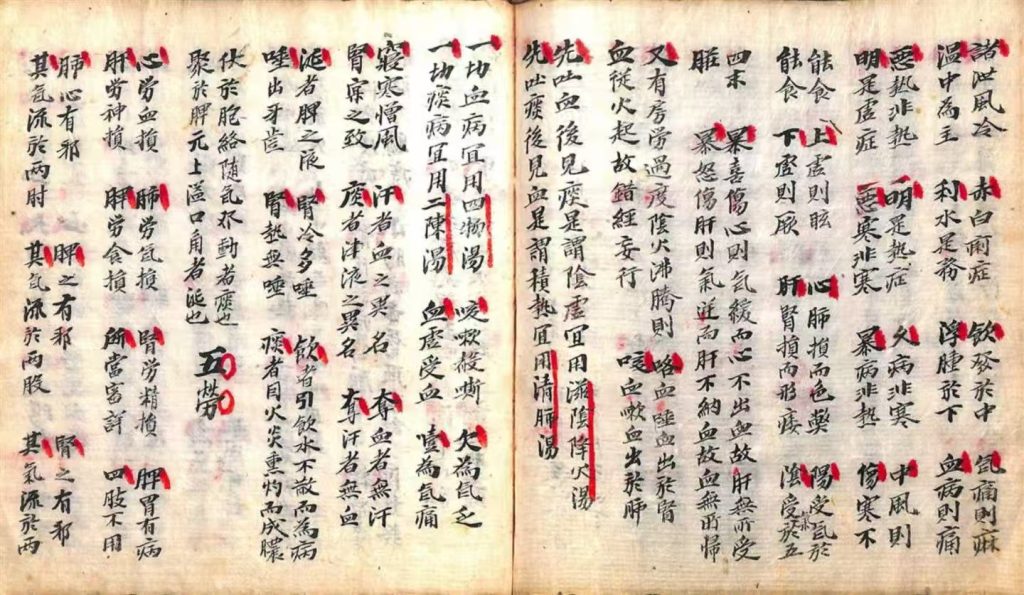 諸泄風冷 赤白痢症 飲發於中 氣痛則麻
温中為主 利水是務 浮腫於下 血病則痛
惡熱非熱 明是熱症 久病非寒 中風則
明是虚症 惡寒非寒 暴病非熱 傷寒不
能食 上虚則眩 心肺損而色 陽受氣於
能食 下虚則厥 肝腎損而形痿 陰受氣於五
四末 暴喜傷心則气緩而心不出血故肝無所受
脏 暴怒傷肝則氣逆而肝不納血故血無所歸
又有房劳過度陰火沸騰則 咯血唾血出於腎
血從火起故錯經妄行 咳血嗽血出於肺
先吐血後見痰是謂陰虚冝用滋陰降火湯
先吐痰後見血是謂積熱冝用清肺湯
一切血病冝用四物湯 咳嗽嘶 欠為氣乏
一切痰病冝用二陳湯 血虚受血 噎為氣痛
寒憎風 汗者血之異名 奪血者無汗
腎之致 痰者津液之異名 奪汗者無血
涎者脾之液 腎冷多唾 飲者引飲水不散而為病
唾出牙齿 腎熱無唾 痰者因火炎熏灼而成膿
伏於胞絡随氣不動者痰也
聚於脾元上溢口角者涎也
五劳
心劳血損 肺劳气損 腎劳精損 脾胃有病
肝劳神損 脾劳食損 所當審詳 四肢不用
肺心有邪 脾之有邪 腎之有邪
其气流於兩肘 其气流於兩股 其氣流於两